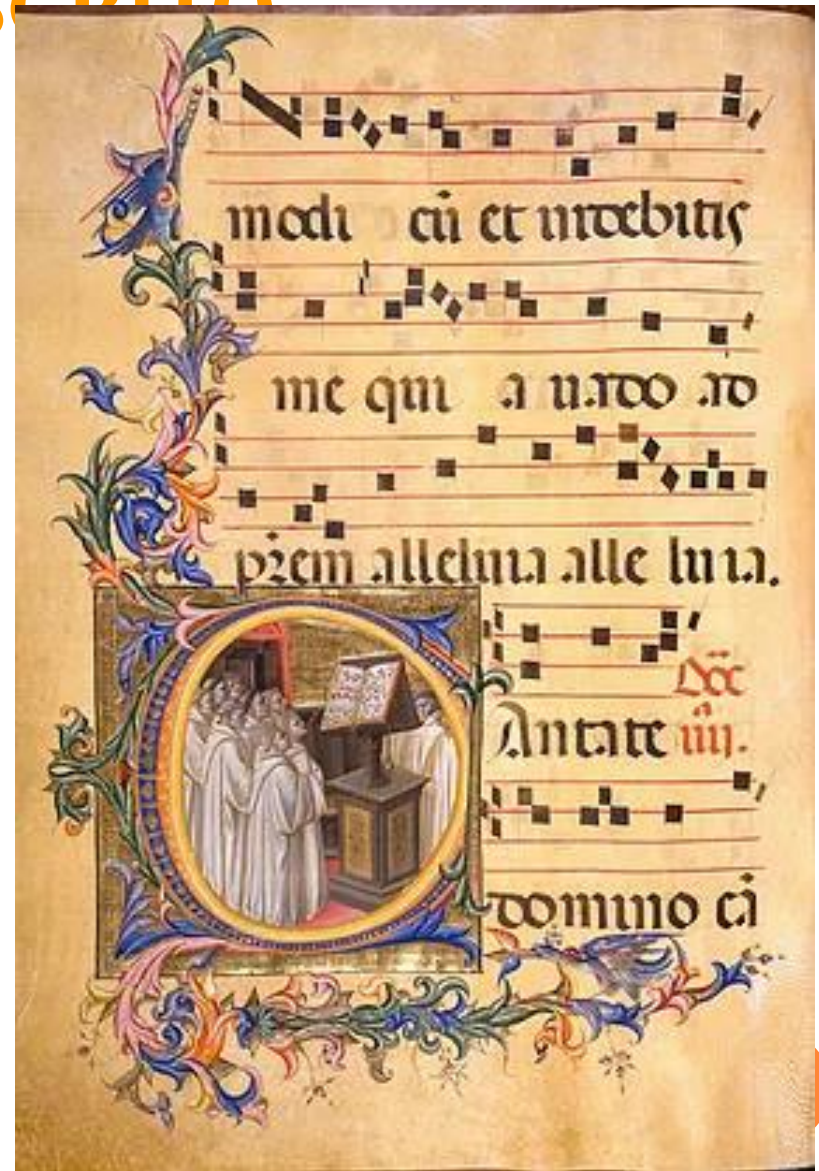 modi cū et uidebitis
me qui a uado ad
pr̄em alleluia alle luia.
CAntate iiii.
domino cā